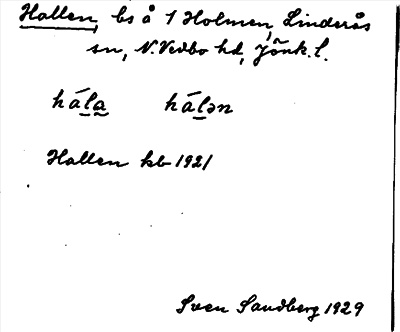 Hallen, bs å 1 Holmen, Linderås
sn, N. Vedbo hd, Jönk. l.
hála hálən
Hallen kb 1921
Sven Sandberg 1929